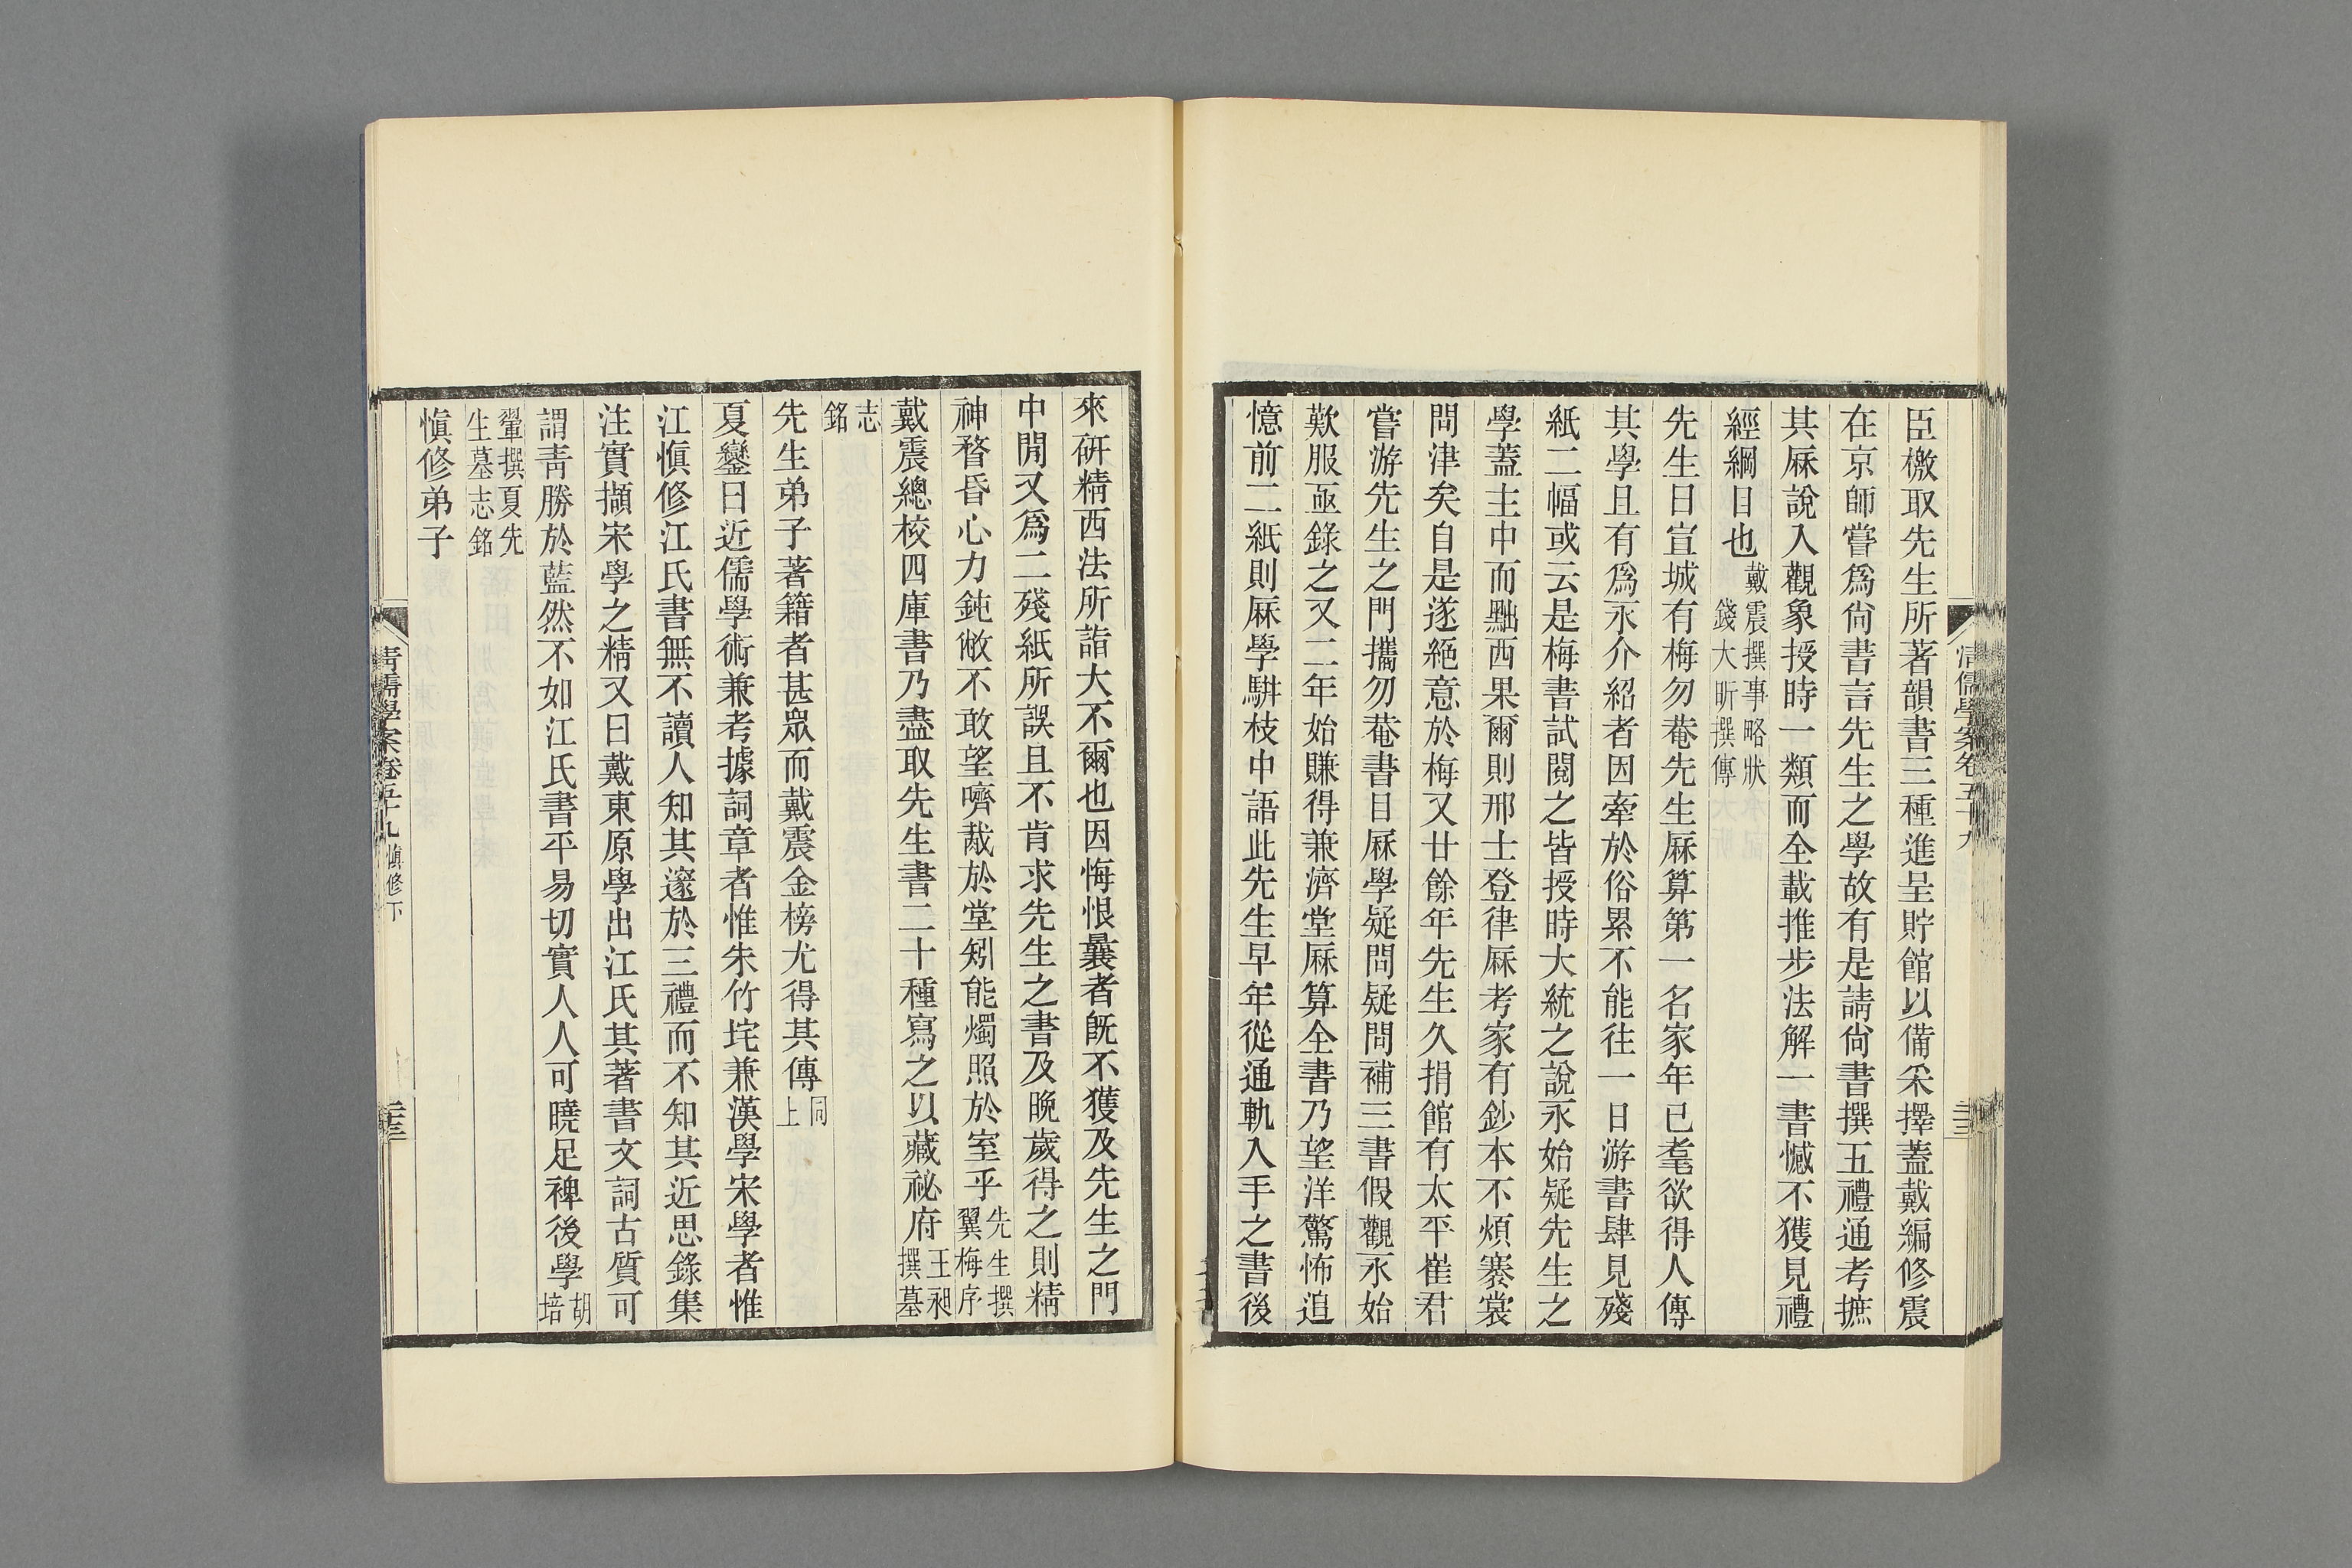 臣檄取先生所著韻書三種進呈貯館以備采擇蓋戴編修震
在京師嘗爲尙書言先生之學故有是請尙書撰五禮通考摭
其厤說入觀象授時一類而全載推步法解一書憾不獲見禮
經綱目也戴震撰事略狀錢大昕撰傳
先生曰宣城有梅勿菴先生厤算第一名家年已耄欲得人傳
其學且有爲永介紹者因牽於俗累不能往一日游書肆見殘
紙二幅或云是梅書試閱之皆授時大統之說永始疑先生之
學蓋主中而黜西果爾則邢士登律厤考家有鈔本不煩褰裳
問津矣自是遂絕意於梅又廿餘年先生久捐館有太平崔君
嘗游先生之門攜勿菴書目厤學疑問疑問補三書假觀永始
歎服亟錄之又二年始賺得兼濟堂厤算全書乃望洋驚怖追
憶前二紙則厤學駢枝中語此先生早年從通軌入手之書後
清儒學案卷五十九
三
來研精西法所詣大不爾也因悔恨曩者旣不獲及先生之門
中閒又爲二殘紙所誤且不肯求先生之書及晩歲得之則精
神瞀昏心力鈍敝不敢望嚌胾於堂矧能燭照於室乎先生撰翼梅序
戴震總校四庫書乃盡取先生書二十種寫之以藏祕府王昶撰墓
志銘
先生弟子著籍者甚眾而戴震金榜尤得其傳同上
夏鑾曰近儒學術兼考據詞章者惟朱竹垞兼漢學宋學者惟
江愼修江氏書無不讀人知其邃於三禮而不知其近思錄集
注實擷宋學之精又曰戴東原學出江氏其著書文詞古質可
謂靑勝於藍然不如江氏書平易切實人人可曉足裨後學胡培
翬撰夏先生墓志銘
愼修弟子
清儒學案卷五十九 愼修下
三